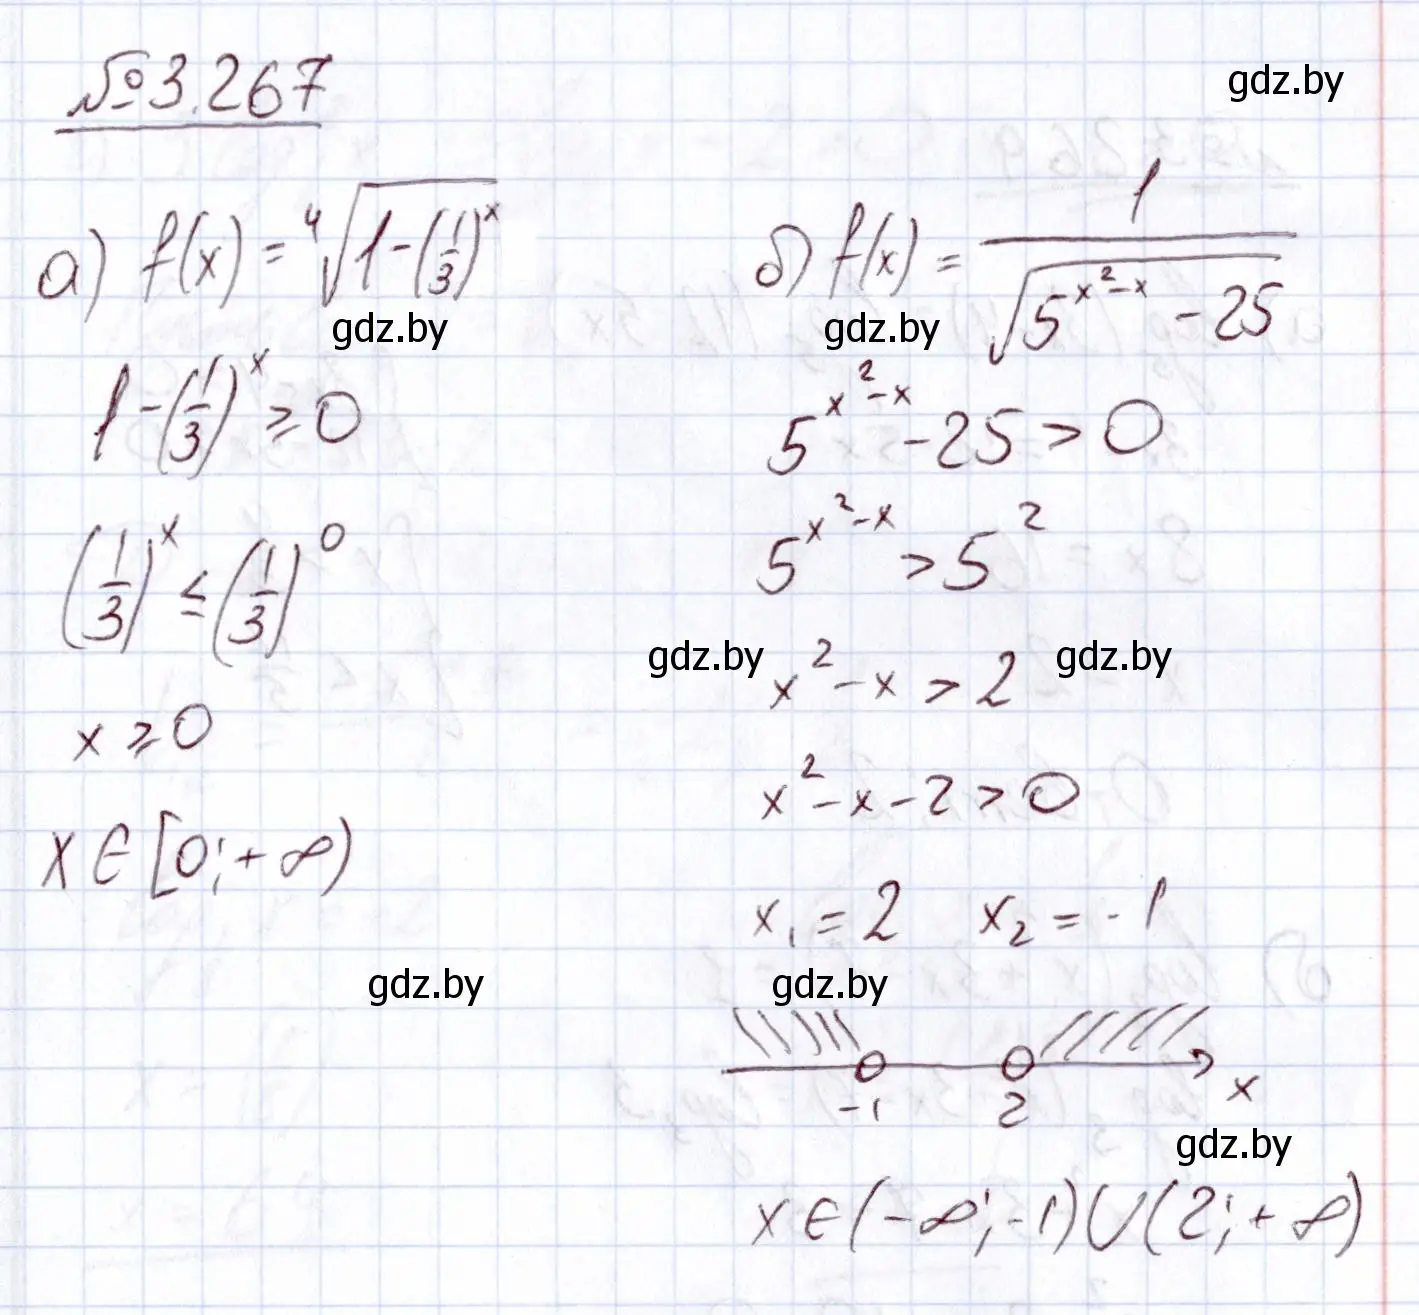 №3.267
gdz.by
а) f(x) = ⁴√(1-(1/3)^x)
gdz.by
1-(1/3)^x ≥ 0
(1/3)^x ≤ (1/3)^0
x ≥ 0
x ∈ [0; +∞)
gdz.by
б) f(x) = 1/√(5^(x²-x) - 25)
gdz.by
5^(x²-x) - 25 > 0
5^(x²-x) > 5²
gdz.by gdz.by
x² - x > 2
x² - x - 2 > 0
x₁ = 2 x₂ = -1
gdz.by
-1 2 x
gdz.by
x ∈ (-∞; -1) ∪ (2; +∞)